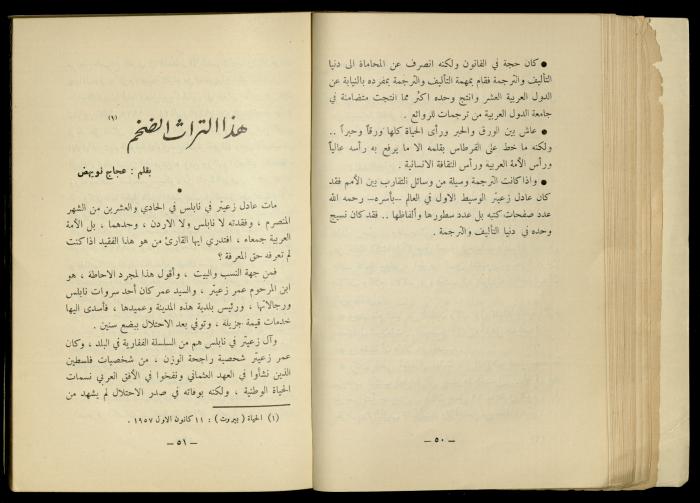 ● كان حجة في القانون ولكنه انصرف عن المحاماة الى دنيا
التأليف والترجمة فقام بمهمة التأليف والترجمة بمفرده بالنيابة عن
الدول العربية العشر وانتج وحده اكثر مما انتجت متضامنة في
جامعة الدول العربية من ترجمات للروائع .
● عاش بين الورق والحبر ورأى الحياة كلها ورقاً وحبراً ..
ولكنه ما خط على القرطاس بقلمه الا ما يرفع به رأسه عالياً
ورأس الأمة العربية ورأس الثقافة الانسانية .
● واذا كانت الترجمة وسيلة من وسائل التقارب بين الأمم فقد
كان عادل زعيتر الوسيط الاول في العالم –بأسره– رحمه الله
عدد صفحات كتبه بل عدد سطورها وألفاظها .. فقد كان نسيج
وحده في دنيا التأليف والترجمة .
– ٥٠ –
هذا التراث الضخم (١)
بقلم : عجاج نويهض
●
مات عادل زعيتر في نابلس في الحادي والعشرين من الشهر
المنصرم ، وفقدته لا نابلس ولا الاردن ، وحدهما ، بل الأمة
العربية جمعاء ، افتدري ايها القارئ من هو هذا الفقيد اذا كنت
لم تعرفه حق المعرفة ؟
فمن جهة النسب والبيت ، وأقول هذا لمجرد الاحاطة ، هو
ابن المرحوم عمر زعيتر ، والسيد عمر كان أحد سروات نابلس
ورجالاتها ، ورئيس بلدية هذه المدينة وعميدها ، فأسدى اليها
خدمات قيمة جزيلة ، وتوفي بعد الاحتلال ببضع سنين .
وآل زعيتر في نابلس هم من السلسلة الفقارية في البلد ، وكان
عمر زعيتر شخصية راجحة الوزن ، من شخصيات فلسطين
الذين نشأوا في العهد العثماني ونفخوا في الأفق العربي نسمات
الحياة الوطنية ، ولكنه بوفاته في صدر الاحتلال لم يشهد من
(١) الحياة ( بيروت ) : ١١ كانون الاول ١٩٥٧ .
– ٥١ –